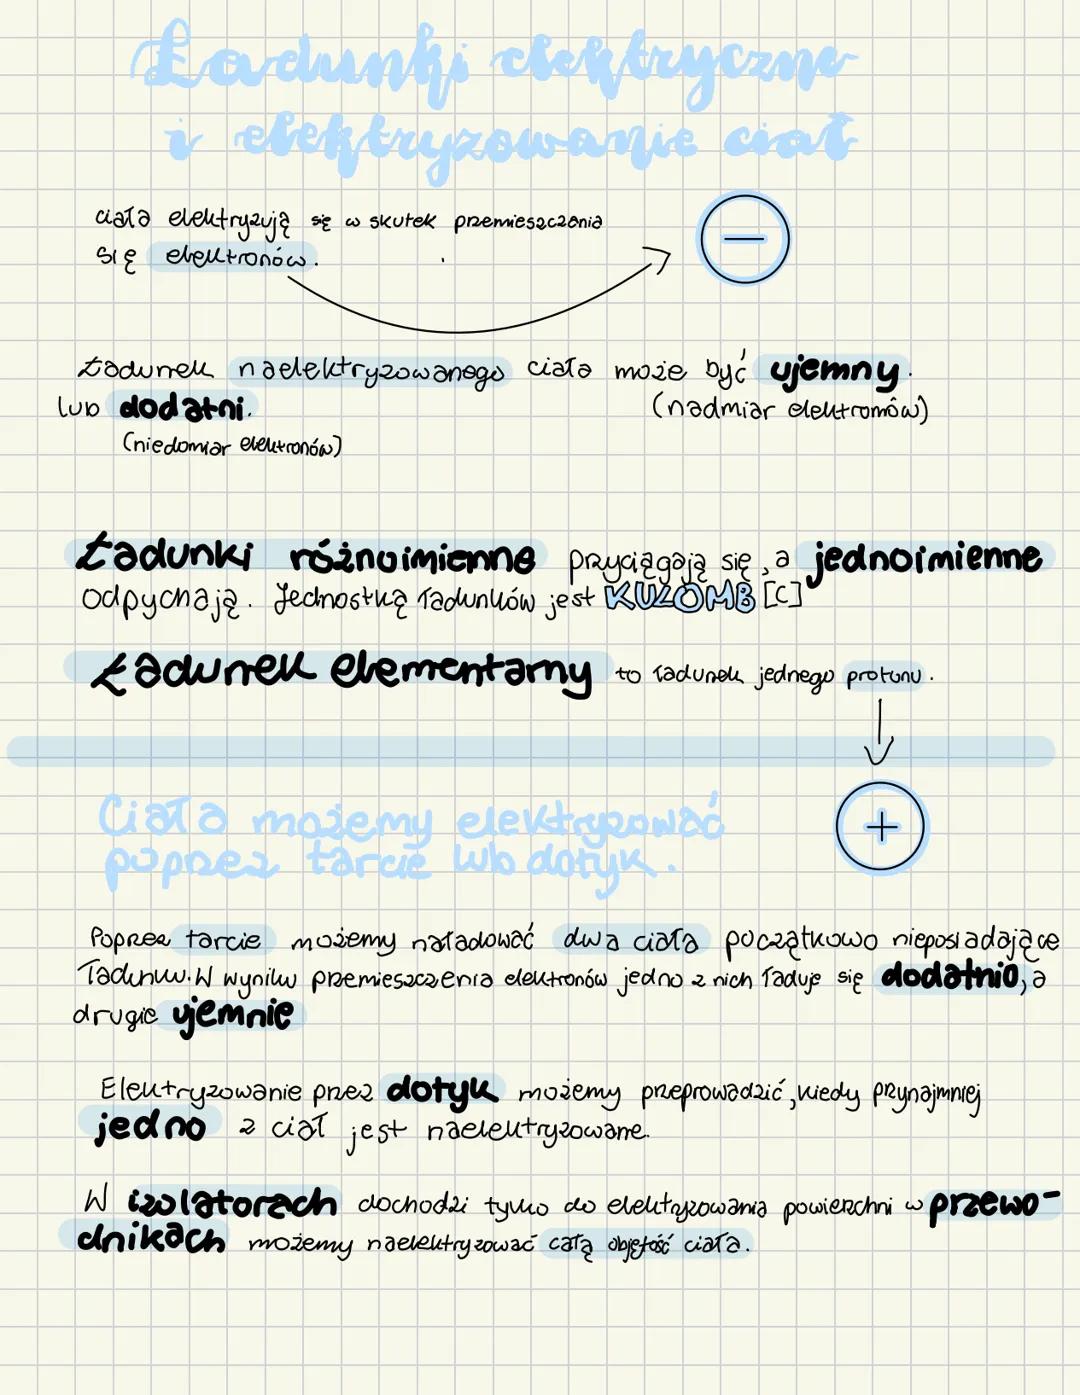 Ładunki elektryczne
i elektryzowanie ciał
ciała elektryzują się w skutek przemieszczenia
się elektronów.
Ładunek naelektryzowanego ciała może być ujemny.
lub dodatni.
(nadmiar elektronów)
(niedomiar elektronów)
Ładunki różnoimienne przyciągają się, a jednoimienne
odpychają. Jednostką ładunków jest KULOMB [C]
Ładunek elementarny to ładunek jednego protonu.
Ciała możemy elektryzować
poprzez tarcie lub dotyk.
Poprzez tarcie możemy naładować dwa ciała początkowo nieposiadające
ładunku. W wyniku przemieszczenia elektronów jedno z nich ładuje się dodatnio, a
drugie ujemnie
Elektryzowanie przez dotyk możemy przeprowadzić, kiedy przynajmniej
jedno z ciał jest naelektryzowane.
W izolatorach dochodzi tylko do elektryzowania powierzchni w przewo-
dnikach możemy naelektryzować całą objętość ciała.